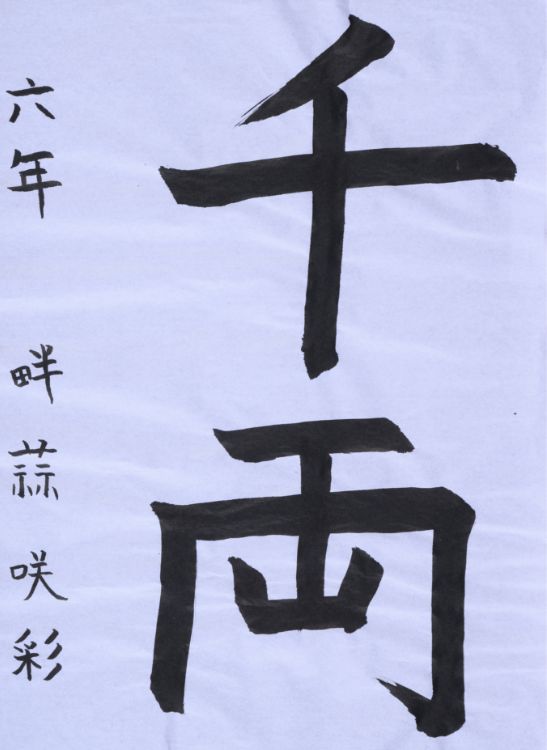 千両
六年 畔蒜咲彩